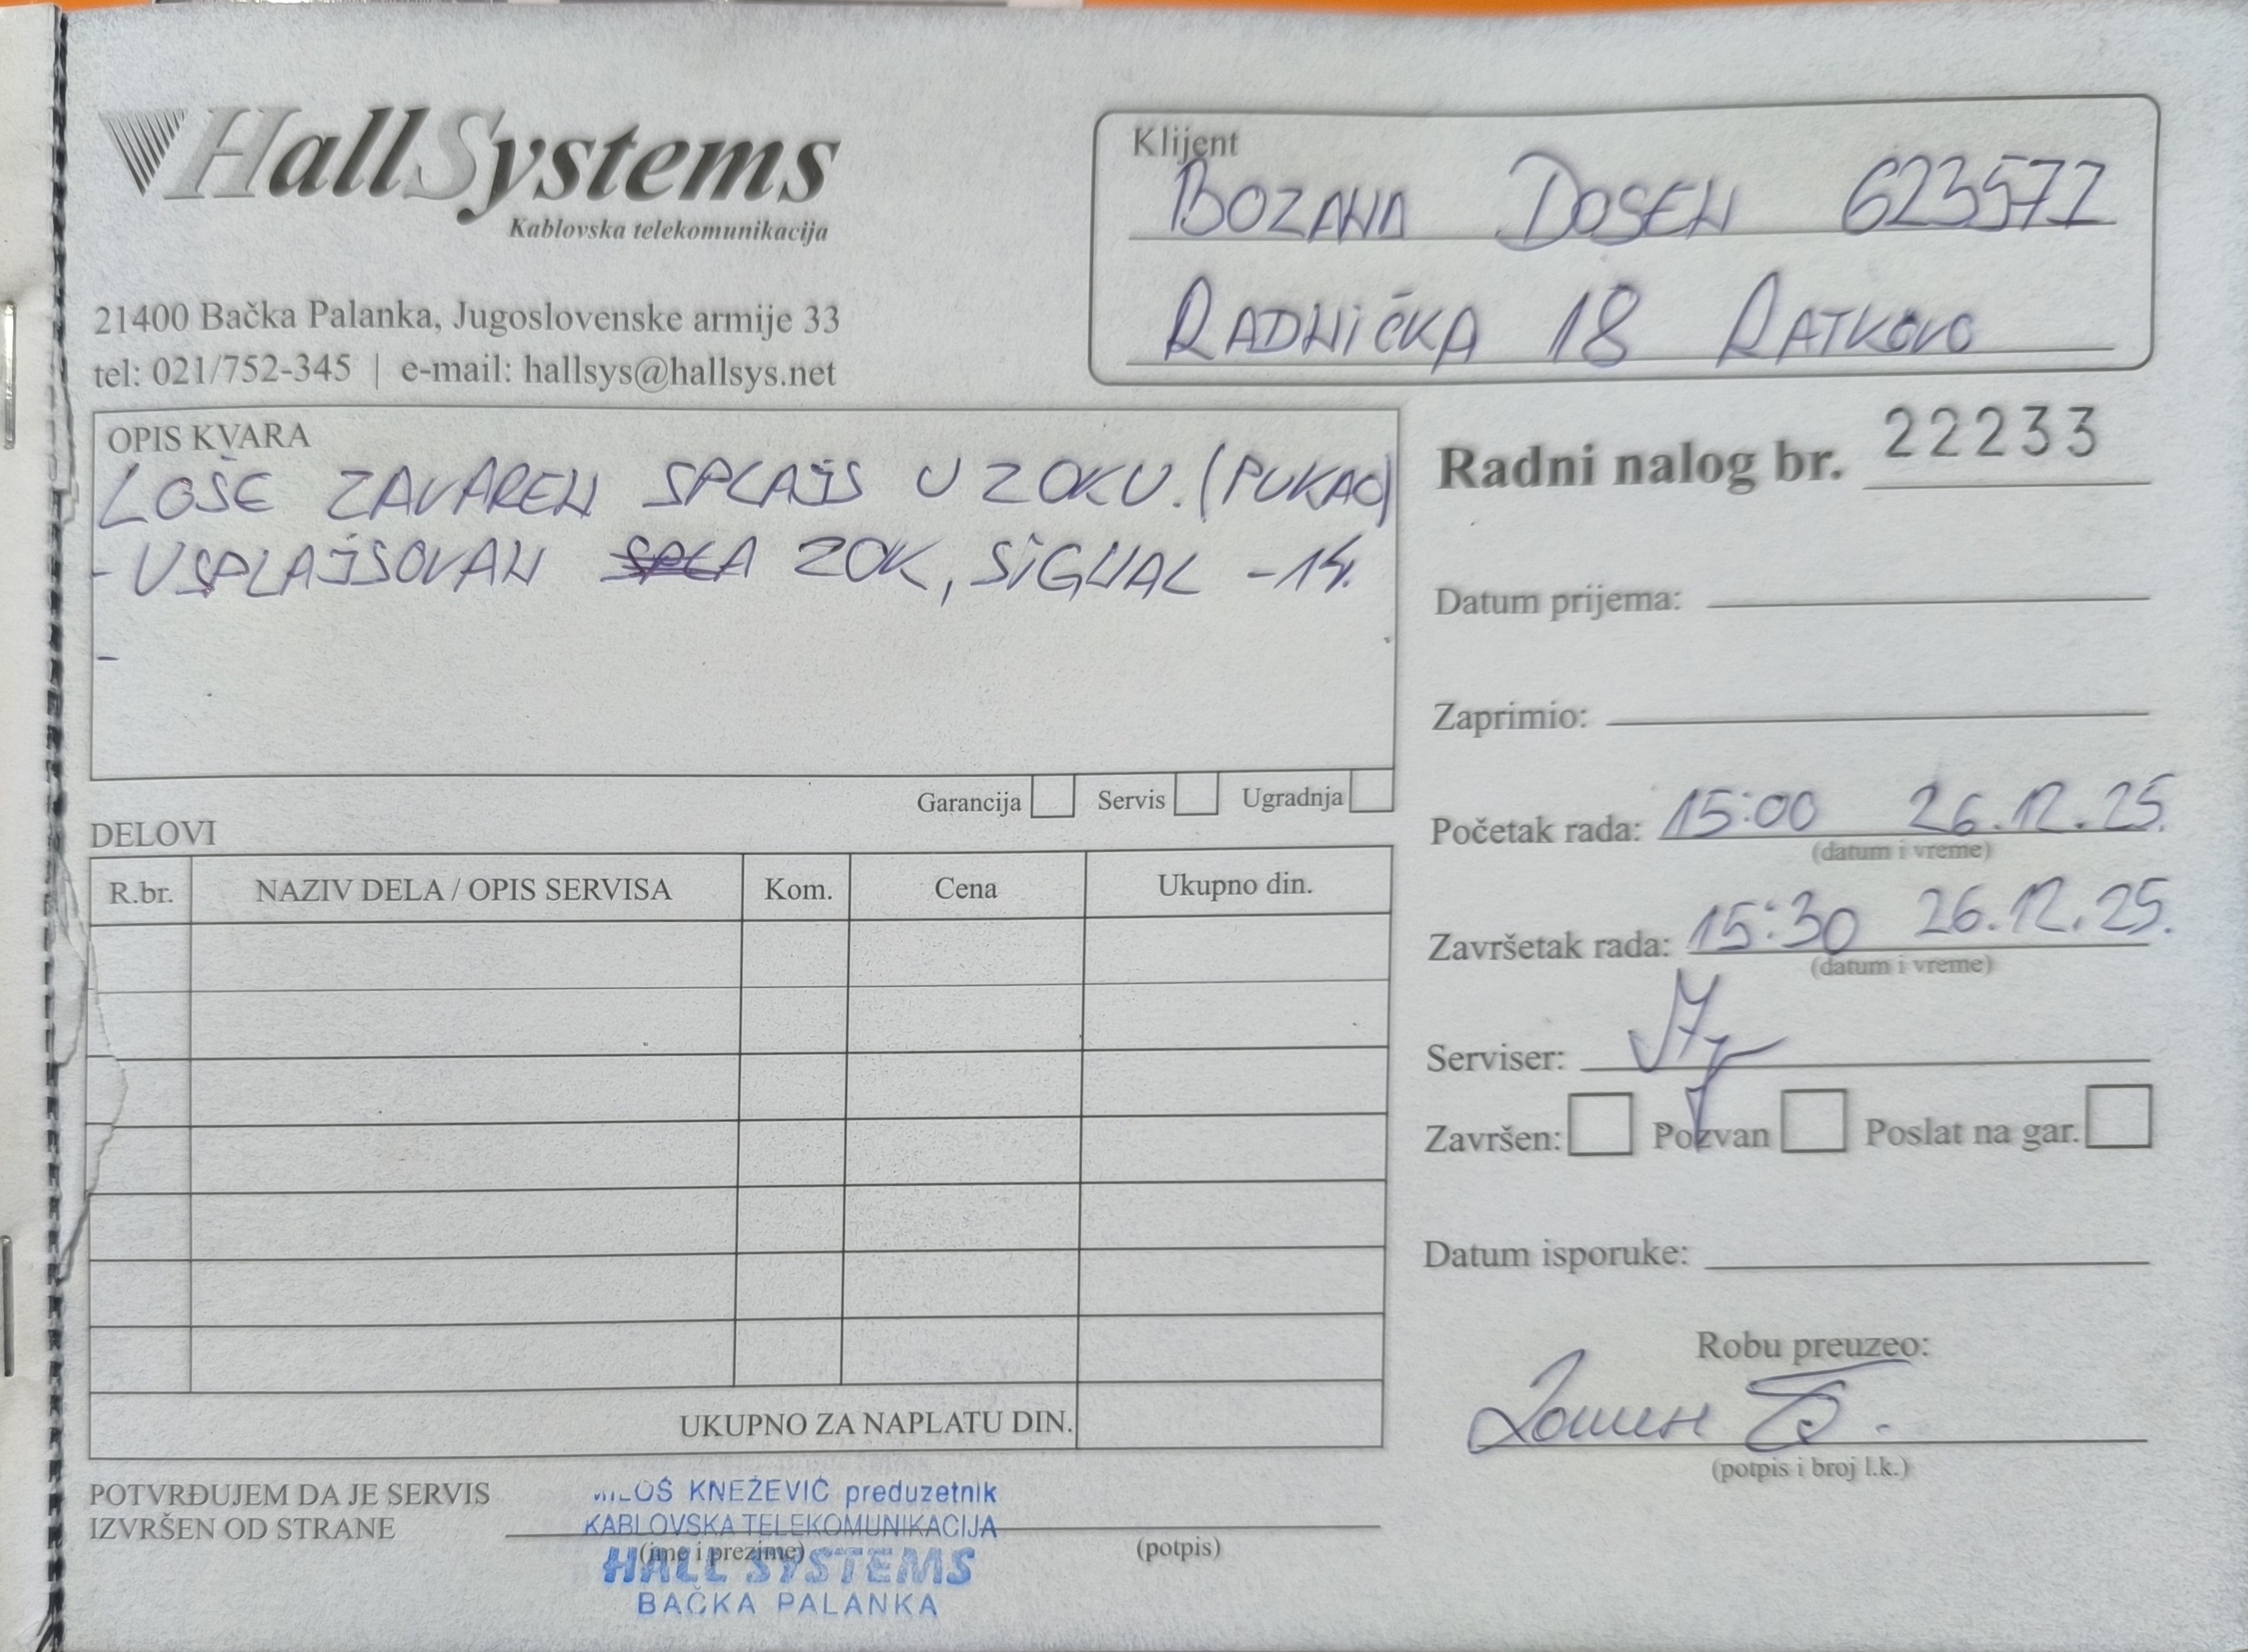 HallSystems
Kablovska telekomunikacija
21400 Bačka Palanka, Jugoslovenske armije 33
tel: 021/752-345 | e-mail: hallsys@hallsys.net
Klijent
BOZANA DOSEN 623571
RADNIČKA 18 RATKOVO
OPIS KVARA
LOŠE ZAVAREN SPLAJS U ZOKU. (PUKAO)
- USPLAJSOVAN ZOK, SIGNAL -14.
-
Garancija Servis Ugradnja
Radni nalog br. 22233
Datum prijema:
Zaprimio:
Početak rada: 15:00 26.12.25.
(datum i vreme)
Završetak rada: 15:30 26.12.25.
(datum i vreme)
Serviser:
Završen: Pozvan Poslat na gar.
Datum isporuke:
Robu preuzeo:
(potpis i broj l.k.)
DELOVI
R.br. NAZIV DELA / OPIS SERVISA Kom. Cena Ukupno din.
UKUPNO ZA NAPLATU DIN.
POTVRĐUJEM DA JE SERVIS
IZVRŠEN OD STRANE
(ime i prezime) (potpis)
MILOŠ KNEŽEVIĆ preduzetnik
KABLOVSKA TELEKOMUNIKACIJA
HALL SYSTEMS
BAČKA PALANKA